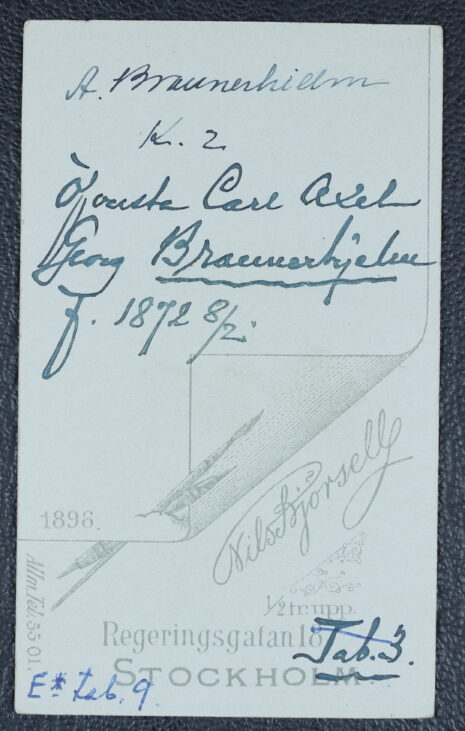 A. Braunerhielm
K. 2
Öfversta Carl Axel
Georg Braunerhjelm
f. 1872 8/2.
1896.
Nils Bjorsell
1/2 tr. upp.
Allm. Tel. 55 01.
Regeringsgatan 18
Tab. 3.
STOCKHOLM.
E* tab. 9.